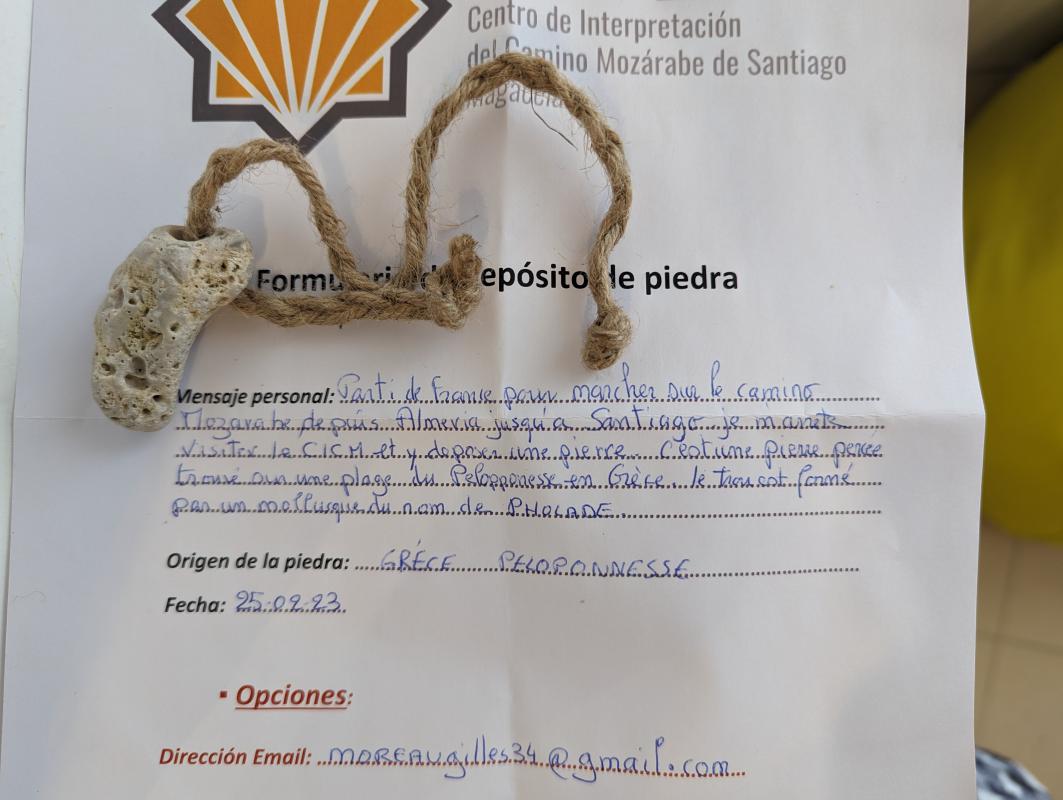 Centro de Interpretación
del Camino Mozárabe de Santiago
Magacela
Formulario de depósito de piedra
Mensaje personal: Parti de France pour marcher sur le camino
Mozarabe depuis Almeria jusqu'a Santiago je m'arrete
visiter le C.I.C.M et y deposer une pierre. C'est une pierre percée
trouvé sur une plage du Pelopponesse en Grèce. le trou est formé
par un mollusque du nom de PHOLADE.
Origen de la piedra: GRÉCE PELOPONNESSE
Fecha: 25.02.23.
▪ Opciones:
Dirección Email: MOREAUgilles34@gmail.com